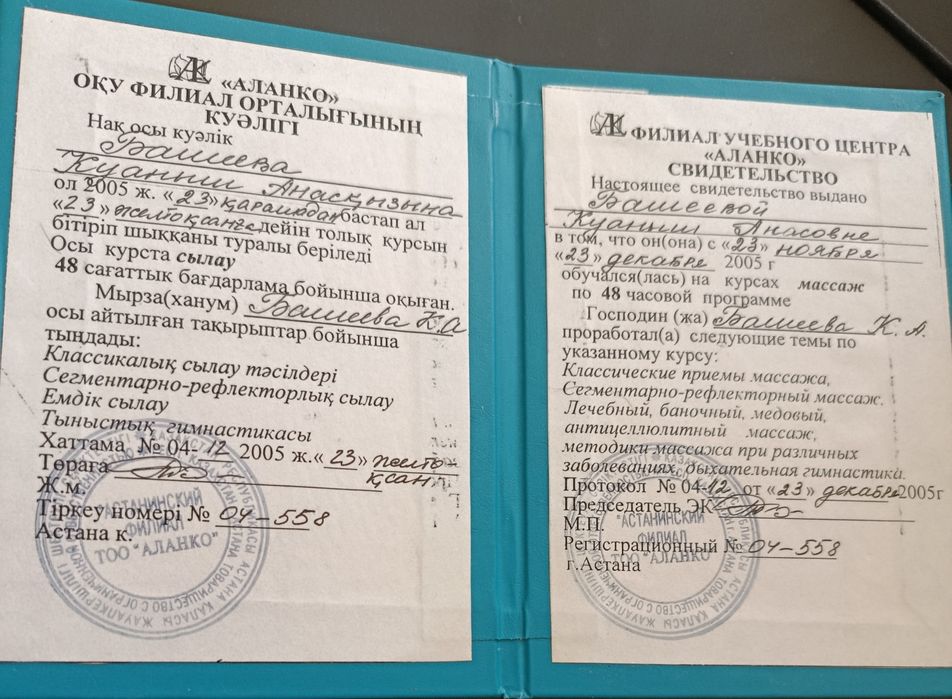 «АЛАНКО»
ОҚУ ФИЛИАЛ ОРТАЛЫҒЫНЫҢ
КУӘЛІГІ
Нақ осы куәлік
Башеева
Куаныш Анасқызына
ол 2005 ж. «23» қарашадан бастап ал
«23» желтоқсанға дейін толық курсын
бітіріп шыққаны туралы беріледі
Осы курста сылау
48 сағаттық бағдарлама бойынша оқыған.
Мырза(ханум) Башеева К А
осы айтылған тақырыптар бойынша
тыңдады:
Классикалық сылау тәсілдері
Сегментарно-рефлекторлық сылау
Емдік сылау
Тыныстық гимнастикасы
Хаттама № 04-12 2005 ж. «23» желто-
Төраға қсан
Ж.м.
Тіркеу номері № 04-558
Астана к.
АСТАНИНСКИЙ
ФИЛИАЛ
ТОО "АЛАНКО"
ФИЛИАЛ УЧЕБНОГО ЦЕНТРА
«АЛАНКО»
СВИДЕТЕЛЬСТВО
Настоящее свидетельство выдано
Башеевой
Куаныш Анасовне
в том, что он(она) с «23» ноября
«23» декабря 2005 г
обучался(лась) на курсах массаж
по 48 часовой программе
Господин (жа) Башеева К. А.
проработал(а) следующие темы по
указанному курсу:
Классические приемы массажа,
Сегментарно-рефлекторный массаж.
Лечебный, баночный, медовый,
антицеллюлитный массаж,
методики массажа при различных
заболеваниях, дыхательная гимнастика.
Протокол № 04-12 от «23» декабря 2005г
Председатель ЭК
М.П.
Регистрационный № 04-558
г.Астана
"АСТАНИНСКИЙ
ФИЛИАЛ
ТОО "АЛАНКО"